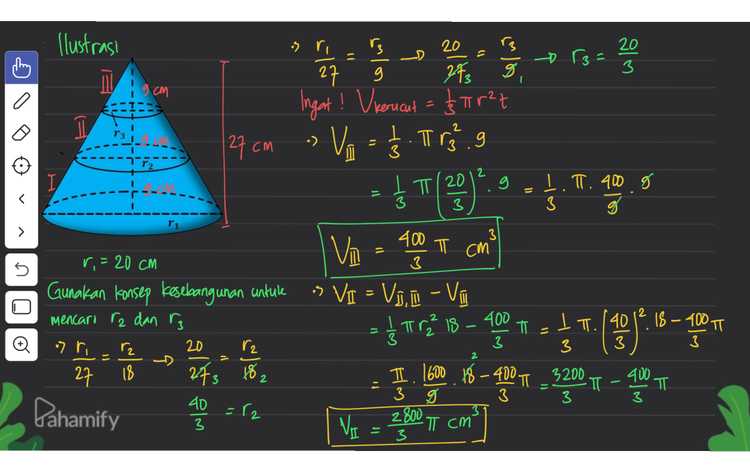 Ilustrasi
III
9 cm
II
r₃
9 cm
27 cm
r₂
I
9 cm
r₁
r₁ = 20 cm
Gunakan konsep kesebangunan untuk
mencari r₂ dan r₃
•> r₁/27 = r₂/18 → 20/27₃ = r₂/18₂
40/3 = r₂
Pahamify
•> r₁/27 = r₃/9 → 20/27₃ = r₃/9₁ → r₃ = 20/3
Ingat ! Vkerucut = 1/3 π r² t
•> V_III = 1/3 . π r₃² . 9
= 1/3 π (20/3)² . 9 = 1/3 . π . 400/9 . 9
V_III = 400/3 π cm³
•> V_II = V_II,III - V_III
= 1/3 π r₂² 18 - 400/3 π = 1/3 π . (40/3)² . 18 - 400/3 π
= π/3 . 1600/9 . 18² - 400/3 π = 3200/3 π - 400/3 π
V_II = 2800/3 π cm³